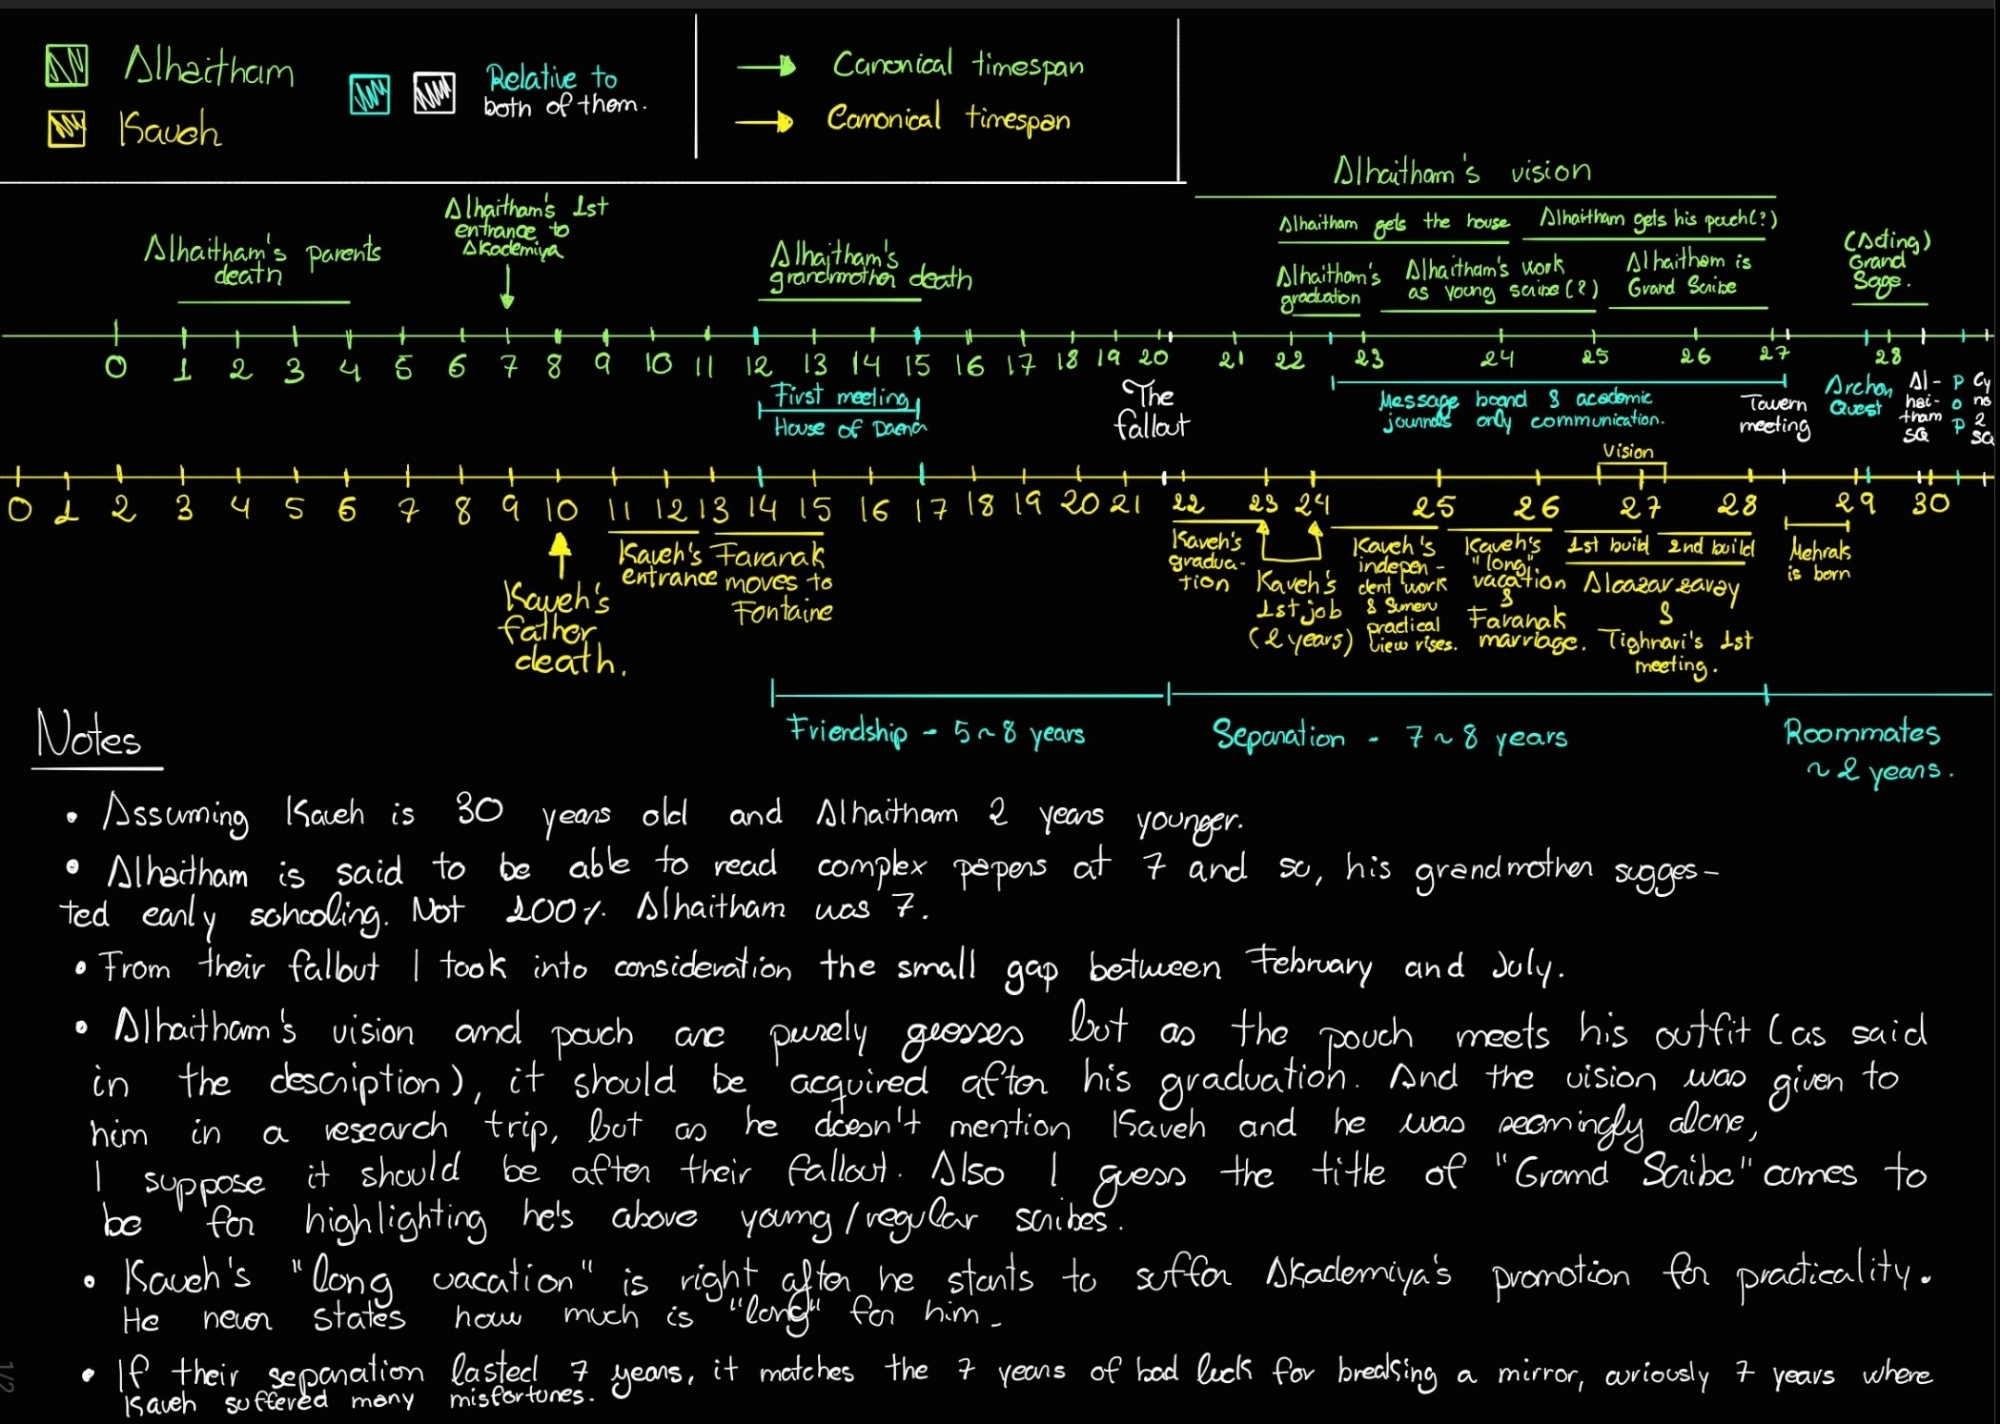 Alhaitham
Kaveh
Relative to
both of them.
Canonical timespan
Canonical timespan
Alhaitham's vision
Alhaitham gets the house
Alhaitham gets his pouch(?)
Alhaitham's parents
death
Alhaitham's 1st
entrance to
Akademiya
Alhaitham's
grandmother death
Alhaitham's
graduation
Alhaitham's work
as young scribe (?)
Alhaitham is
Grand Scribe
(Acting)
Grand
Sage.
0 1 2 3 4 5 6 7 8 9 10 11 12 13 14 15 16 17 18 19 20 21 22 23 24 25 26 27 28
First meeting
House of Daena
The
fallout
Message board & academic
journals only communication.
Tavern
meeting
Archon
Quest
Al-
hai-
tham
SQ
P
O
P
Cy
no
2
SQ
Vision
0 1 2 3 4 5 6 7 8 9 10 11 12 13 14 15 16 17 18 19 20 21 22 23 24 25 26 27 28 29 30
Kaveh's
father
death.
Kaveh's
entrance
Faranak
moves to
Fontaine
Kaveh's
gradua-
tion
Kaveh's
1st job
(2 years)
Kaveh's
indepen-
dent work
& Sumeru
practical
view rises.
Kaveh's
"long"
vacation
&
Faranak
marriage.
1st build
2nd build
Alcazarzaray
&
Tighnari's 1st
meeting.
Mehrak
is born
Friendship - 5~8 years
Separation - 7~8 years
Roommates
~2 years.
Notes
• Assuming Kaveh is 30 years old and Alhaitham 2 years younger.
• Alhaitham is said to be able to read complex papers at 7 and so, his grandmother sugges-
ted early schooling. Not 100% Alhaitham was 7.
• From their fallout I took into consideration the small gap between February and July.
• Alhaitham's vision and pouch are purely guesses but as the pouch meets his outfit (as said
in the description), it should be acquired after his graduation. And the vision was given to
him in a research trip, but as he doesn't mention Kaveh and he was seemingly alone,
I suppose it should be after their fallout. Also I guess the title of "Grand Scribe" comes to
be for highlighting he's above young/regular scribes.
• Kaveh's "long vacation" is right after he starts to suffer Akademiya's promotion for practicality.
He never states how much is "long" for him.
• If their separation lasted 7 years, it matches the 7 years of bad luck for breaking a mirror, curiously 7 years where
Kaveh suffered many misfortunes.
1/2